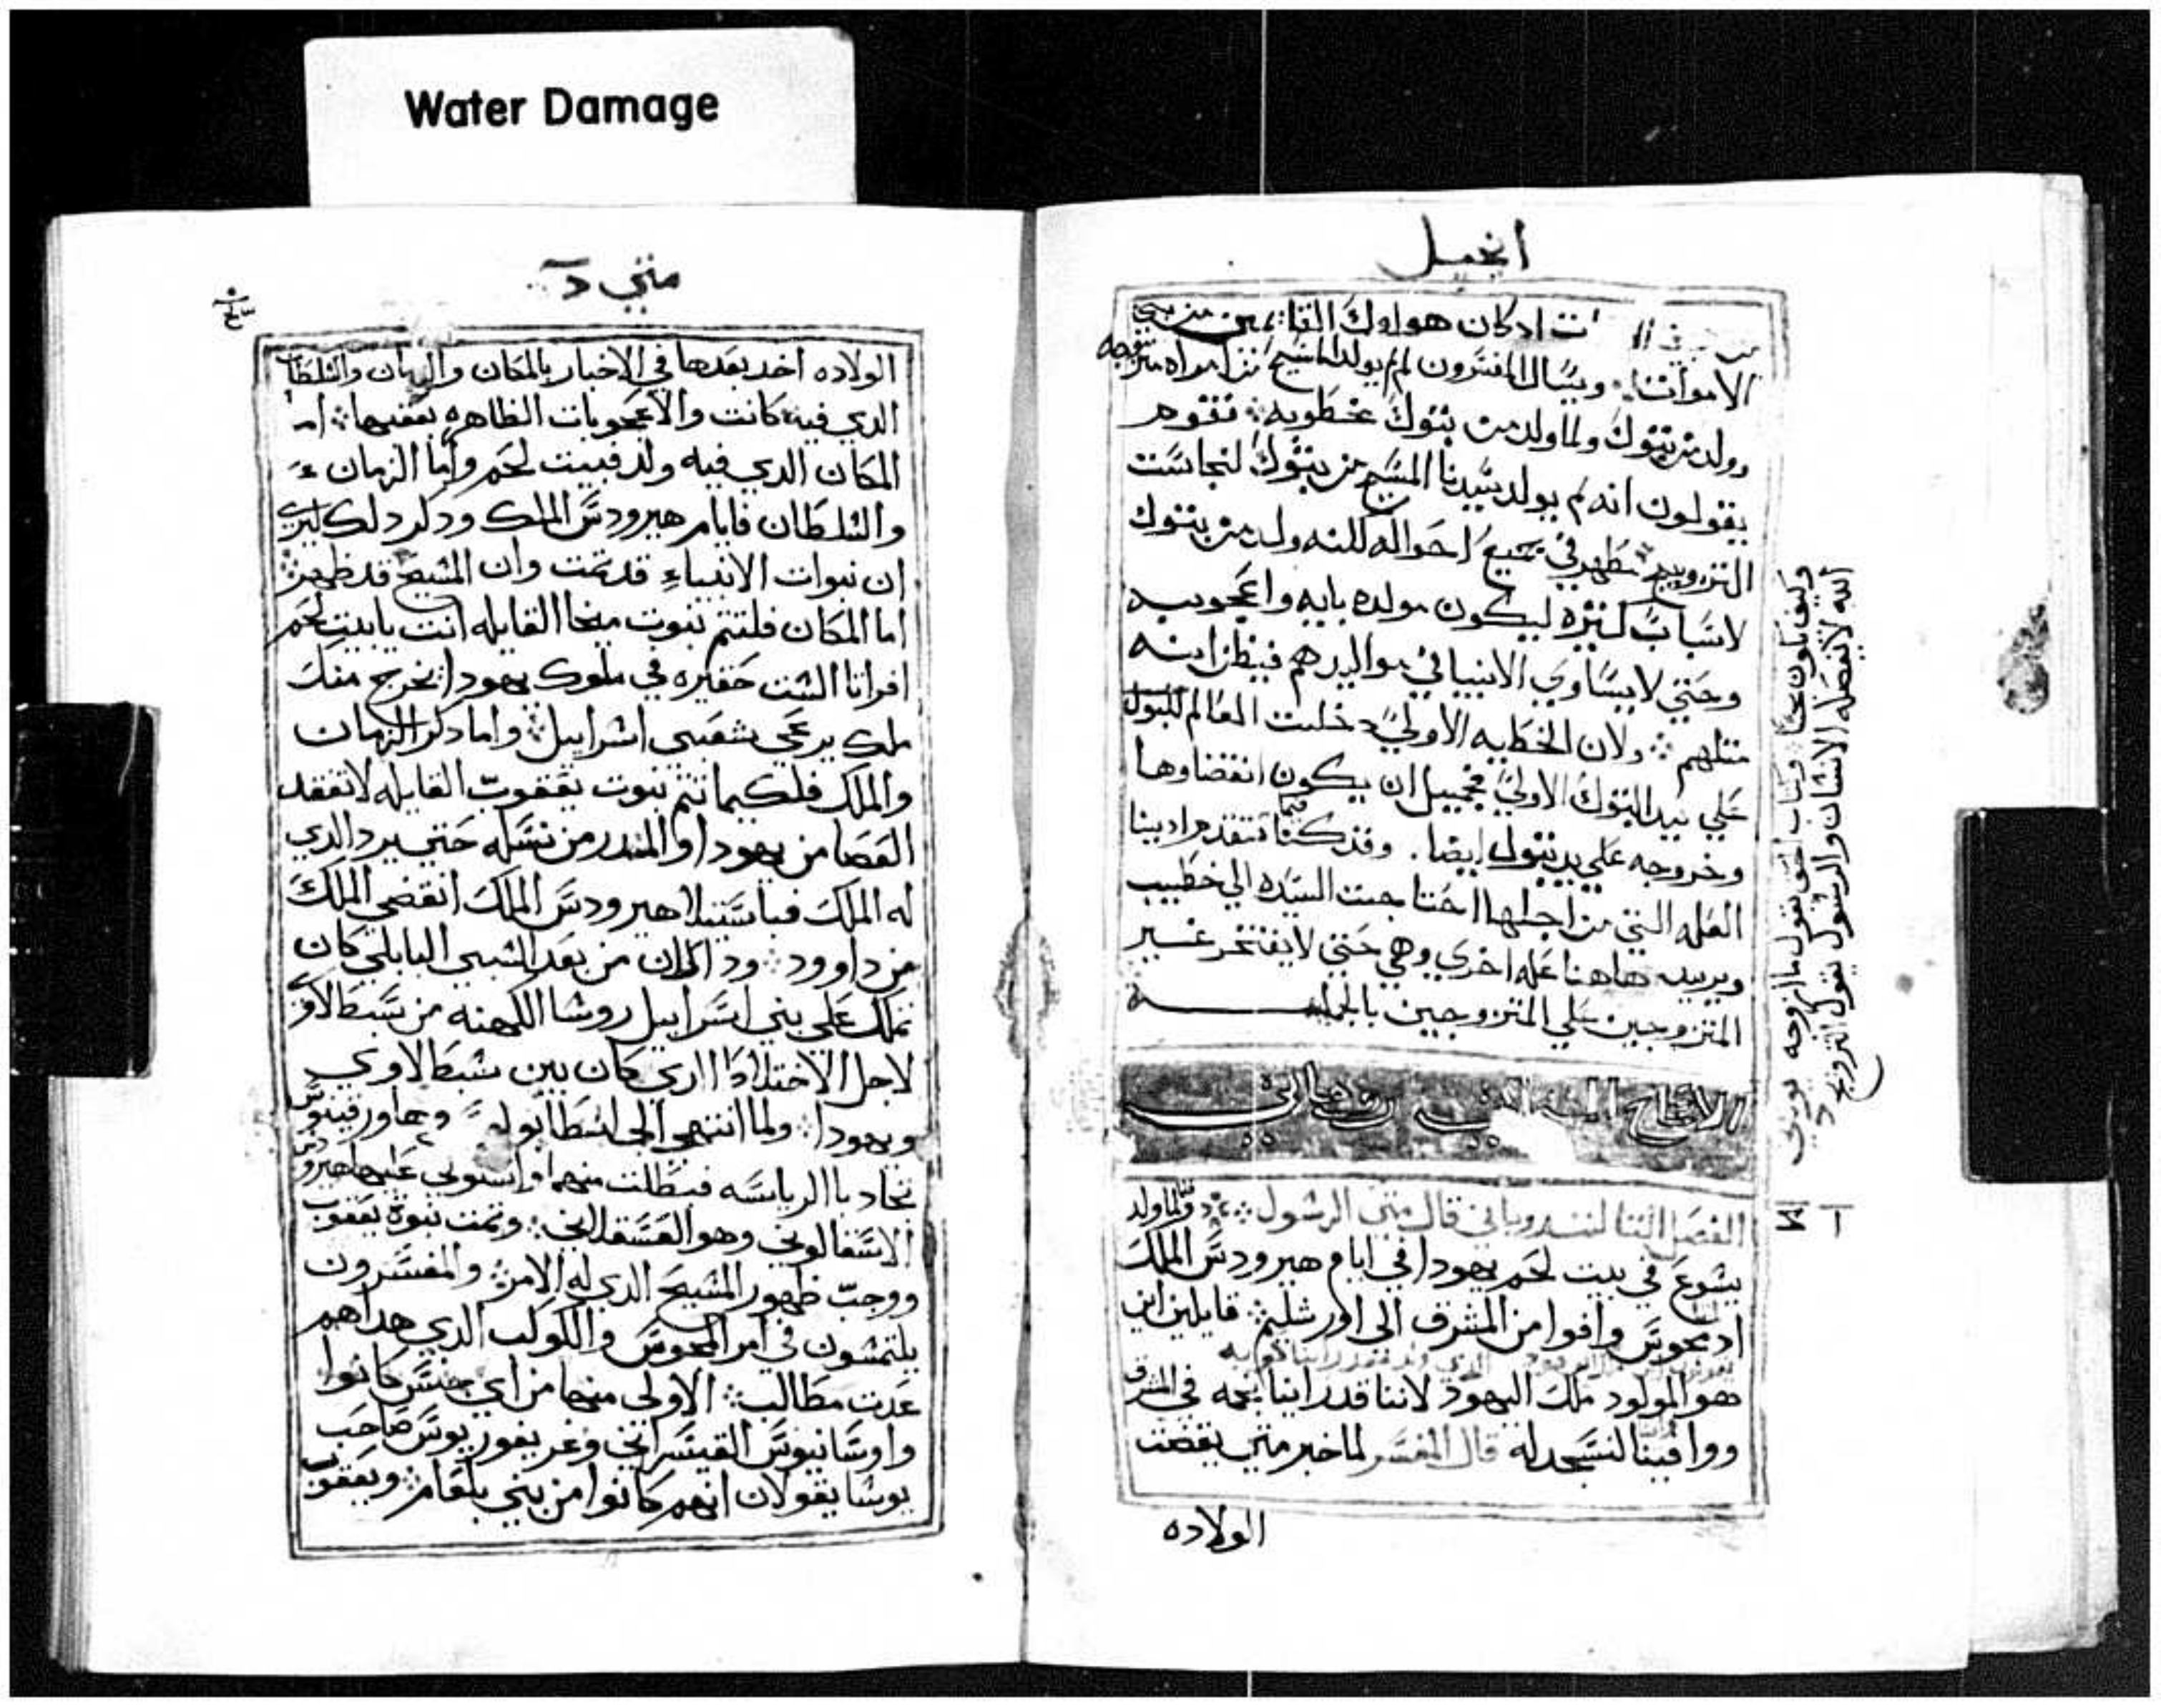 Water Damage
انجيل
ادكان هو اول القايمين من بين
الاموات ويسال المفسرون لم لم يولد المسيح من امراه متزوجه
وولد من بتول ولما ولد من بتول مخطوبه فقوم
يقولون انه لم يولد سيدنا المسيح من بتول لنجاست
التزويج في جميع احواله لكنه ولد من بتول
لاسباب كتيره ليكون مولده بايه واعجوبه
وحتي لا يساوي الانبيا في مواليدهم فيظن انه
متلهم ولان الخطيه الاولي دخلت العالم
علي يد البتول الاولي فجميل ان يكون انقضاوها
وخروجه علي يد بتول ايضا. وقد كنا فيما تقدم ادينا
العله التي من اجلها احتاجت السيده الي خطيب
ويريد هاهنا عله اخري وهي حتي لا يفتخر غير
المتزوجين علي المتزوجين بالجمله
الفصل التا لتندروباني قال متى الرسول ولما ولد
يسوع في بيت لحم يهودا في ايام هيرودس الملك
اد مجوس وافوا من المشرق الى اورشليم قايلين اين
هو المولود ملك اليهود لاننا قد راينا نجمه في المشرق
ووافينا لنسجد له قال المفسر لما خبر متي بقصت
الولاده
وكتاب الحق يقول مار وجه يوسف
الله لا يفصله الانسان والرسول يقول التزويج
متي د
الولاده اخد بعدها في الاخبار بالمكان والزمان والسلطان
الدي فيه كانت والاعجوبات الظاهره بعقبها اما
المكان الدي فيه ولد فبيت لحم واما الزمان
والسلطان فايام هيرودس الملك ودكر دلك ليري
ان نبوات الانبياء قد تمت وان المسيح قد ظهر
اما المكان فلتتم نبوت ميخا القايله انت يا بيت لحم
افراتا الست حقيره في ملوك يهودا يخرج منك
ملك يرعي شعبي اسراييل واما دكر الزمان
والملك فلكيما تتم نبوت يعقوب القايله لا تفقد
العصا من يهودا والمندر من نسله حتي يرد الدي
له الملك فباستيلا هيرودس الملك انقضي الملك
من داوود وداك ان من بعد السبي البابلي كان
تملك علي بني اسراييل روسا الكهنه من سبط لاوي
لاجل الاختلاط الدي كان بين سبط لاوي
ويهودا ولما انتهي الي ارسطابولس وهاورقينوس
تجادبا الرياسه فبطلت منهما واستولي عليها هيرودس
الاسقالوني وهو العسقلاني وتمت نبوة يعقوب
ووجب ظهور المسيح الدي له الامر والمفسرون
يلتمسون في امر المجوس والكوكب الدي هداهم
عدت مطالب الاولي منها من اي جنس كانوا
واوسانيوس القيسراني وغريغوريوس صاحب
نوسا يقولان انهم كانوا من بني بلعام ويعقوب